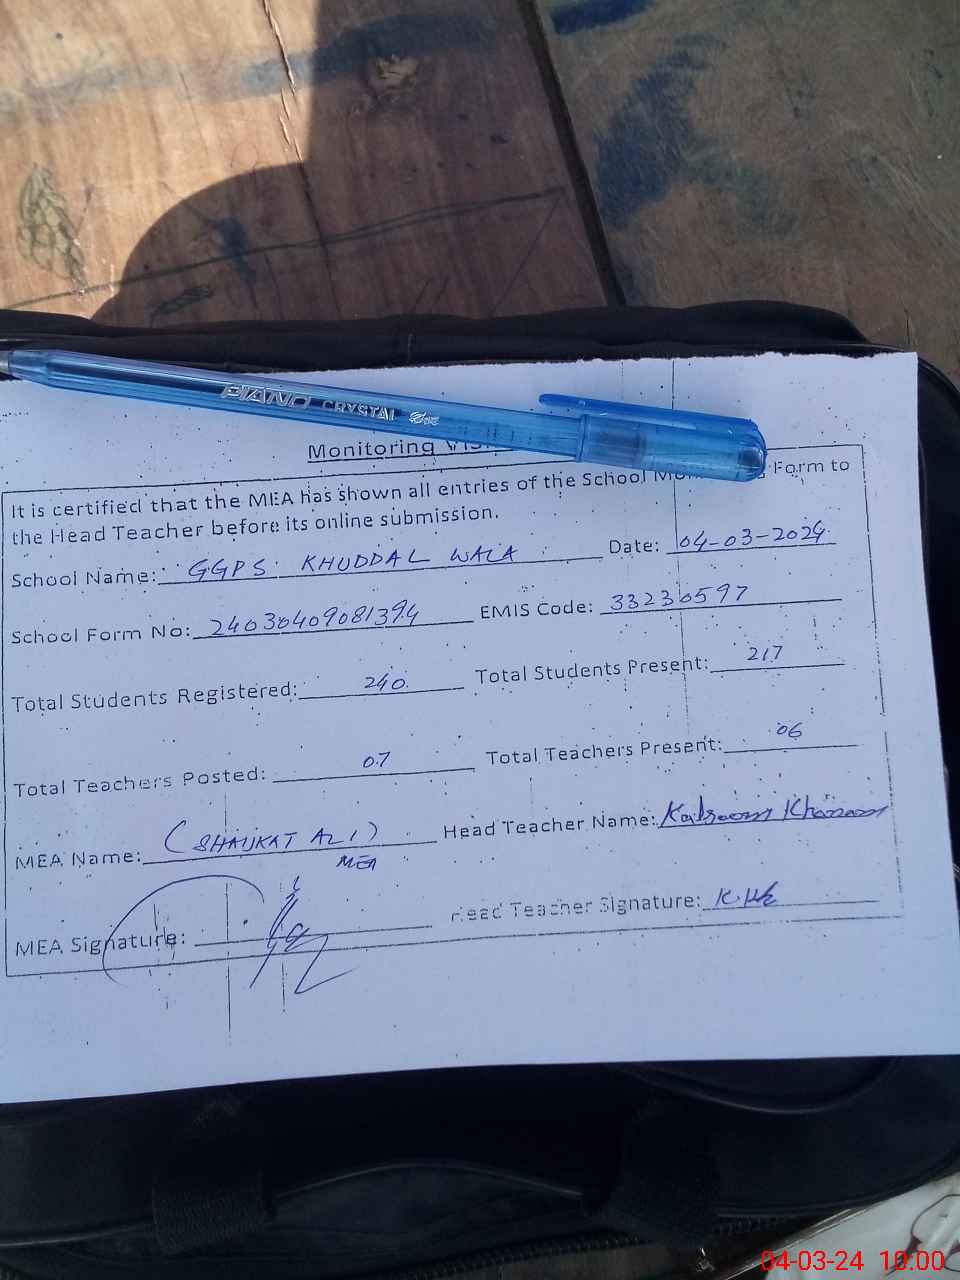 PIANO CRYSTAL
Monitoring
It is certified that the MEA has shown all entries of the School Form to
the Head Teacher before its online submission.
School Name: GGPS KHUDDAL WALA Date: 04-03-2024
School Form No: 24030409081394 EMIS Code: 33230597
Total Students Registered: 240 Total Students Present: 217
Total Teachers Posted: 07 Total Teachers Present: 06
MEA Name: (SHAUKAT ALI) Head Teacher Name: Kalsoom Khanam
MEA
MEA Signature: Head Teacher Signature:
04-03-24 10:00